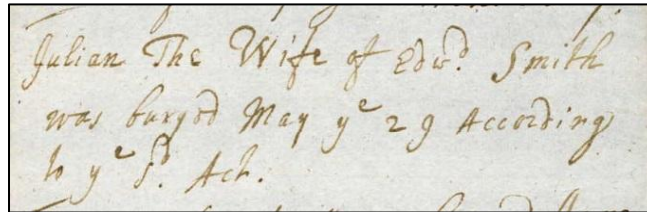 Julian The Wife of Edwd. Smith
was buryed May ye 29 According
to ye sd. Act.